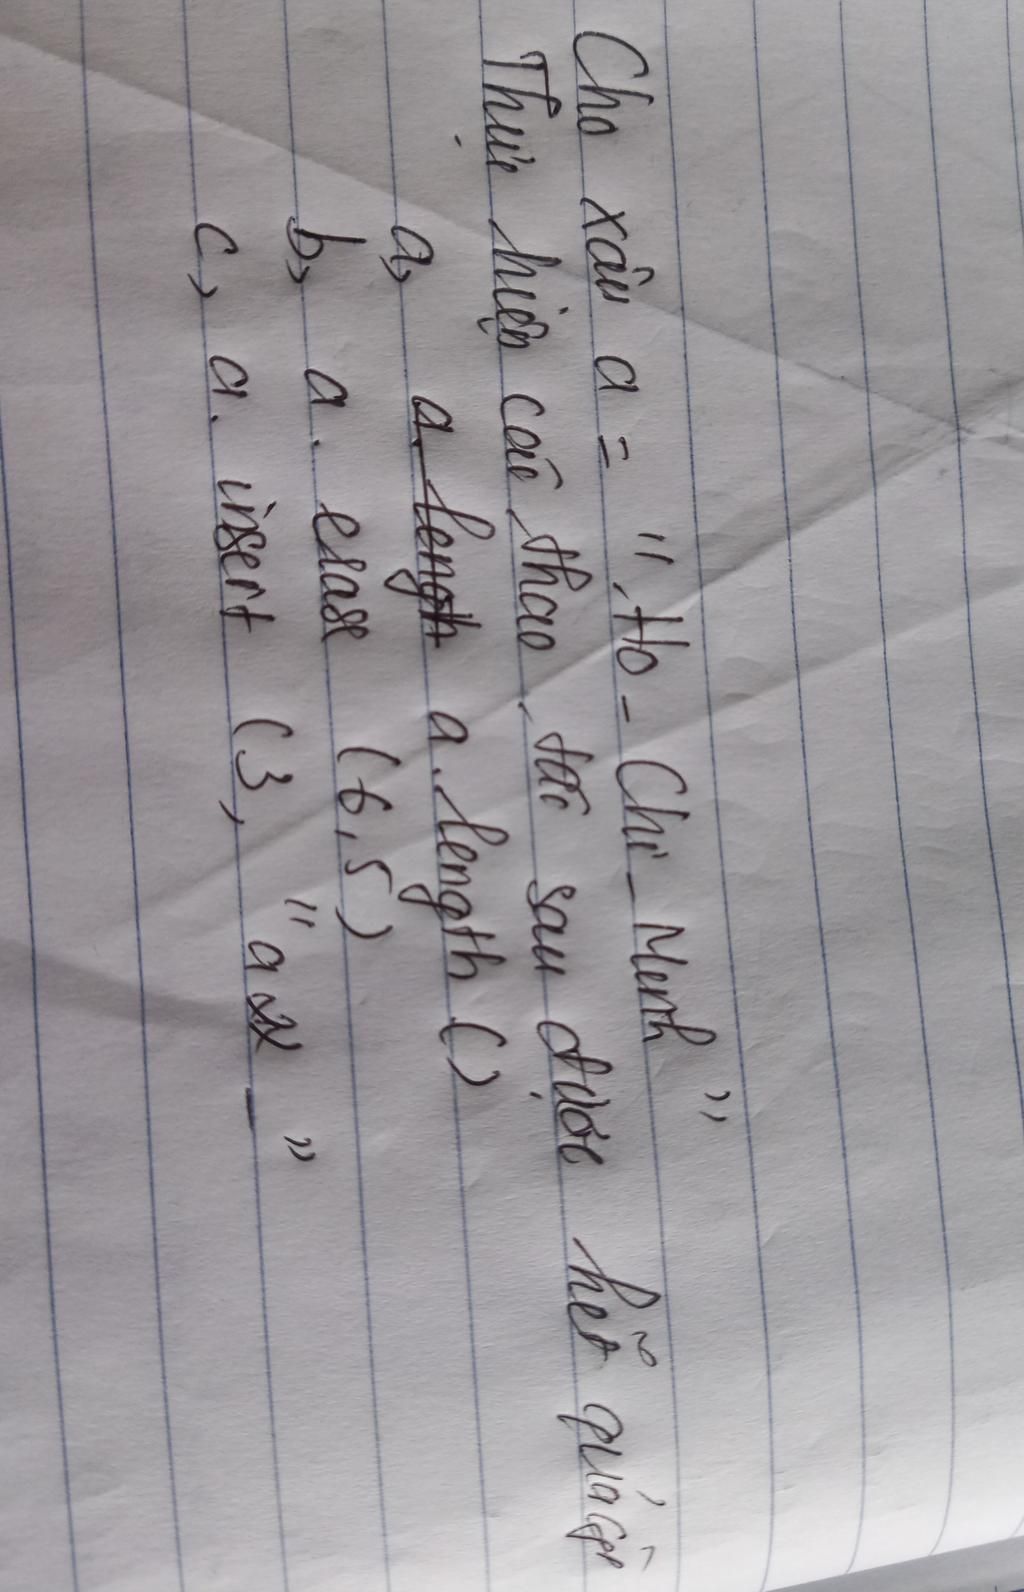 Cho xâu a = "Ho-Chi-Menh"
Thực hiện các thao tác sau được kết quả gì
a, a.length a.length ()
b, a. erase (6,5)
c, a. insert (3, "